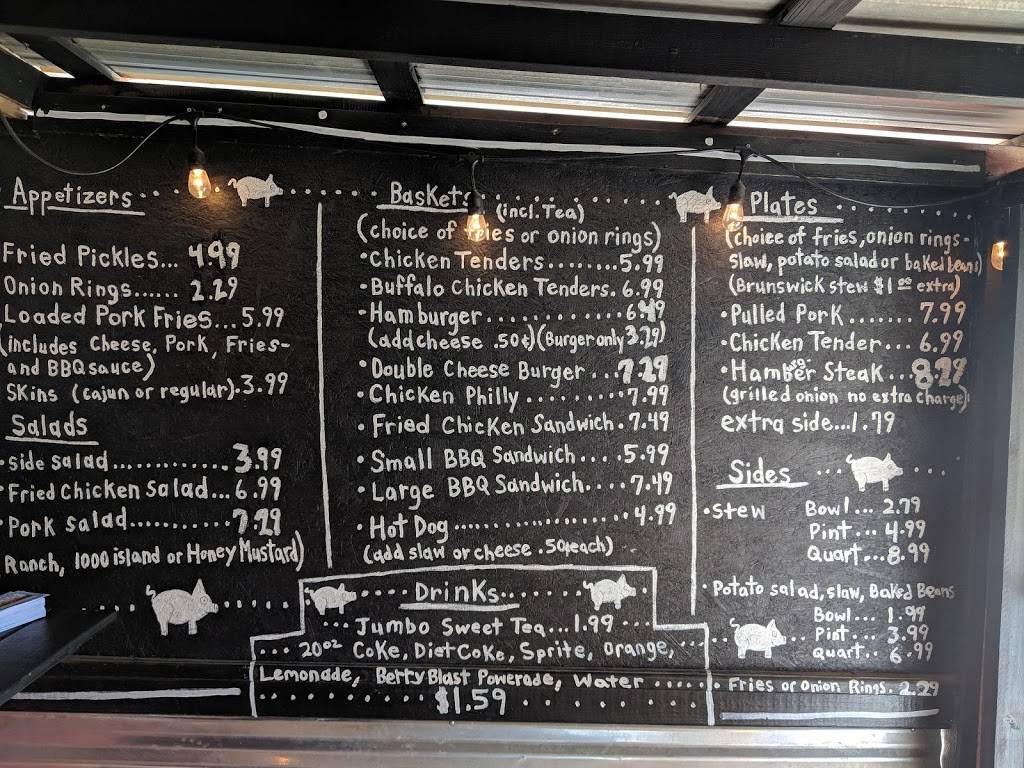 Appetizers
Fried Pickles... 4.99
Onion Rings...... 2.29
Loaded Pork Fries... 5.99
(includes Cheese, Pork, Fries-
and BBQ sauce)
SKins (cajun or regular). 3.99
Salads
·side salad.............. 3.99
·Fried Chicken Salad... 6.99
·Pork salad........... 7.29
Ranch, 1000 island or Honey Mustard)
Baskets (incl. Tea)
(choice of fries or onion rings)
·Chicken Tenders......... 5.99
·Buffalo Chicken Tenders. 6.99
·Hamburger............ 6.49
(add cheese .50¢) (Burger only 3.29)
·Double Cheese Burger ... 7.29
·Chicken Philly ......... 7.99
·Fried Chicken Sandwich. 7.49
·Small BBQ Sandwich.... 5.99
·Large BBQ Sandwich.... 7.49
·Hot Dog.................. 4.99
(add slaw or cheese .50¢ each)
Drinks
Jumbo Sweet Tea... 1.99
20oz Coke, Diet Coke, Sprite, orange,
Lemonade, Berry Blast Powerade, Water
$1.59
Plates
(choice of fries, onion rings-
slaw, potato salad or baked beans)
(Brunswick stew $1 00 extra)
·Pulled Pork ....... 7.99
·Chicken Tender... 6.99
·Hamburg-er Steak... 8.29
(grilled onion no extra charge)
extra side... 1.79
Sides
·stew Bowl... 2.79
Pint... 4.99
Quart... 8.99
·Potato salad, slaw, Baked Beans
Bowl... 1.99
Pint... 3.99
Quart.. 6.99
·Fries or Onion Rings. 2.29